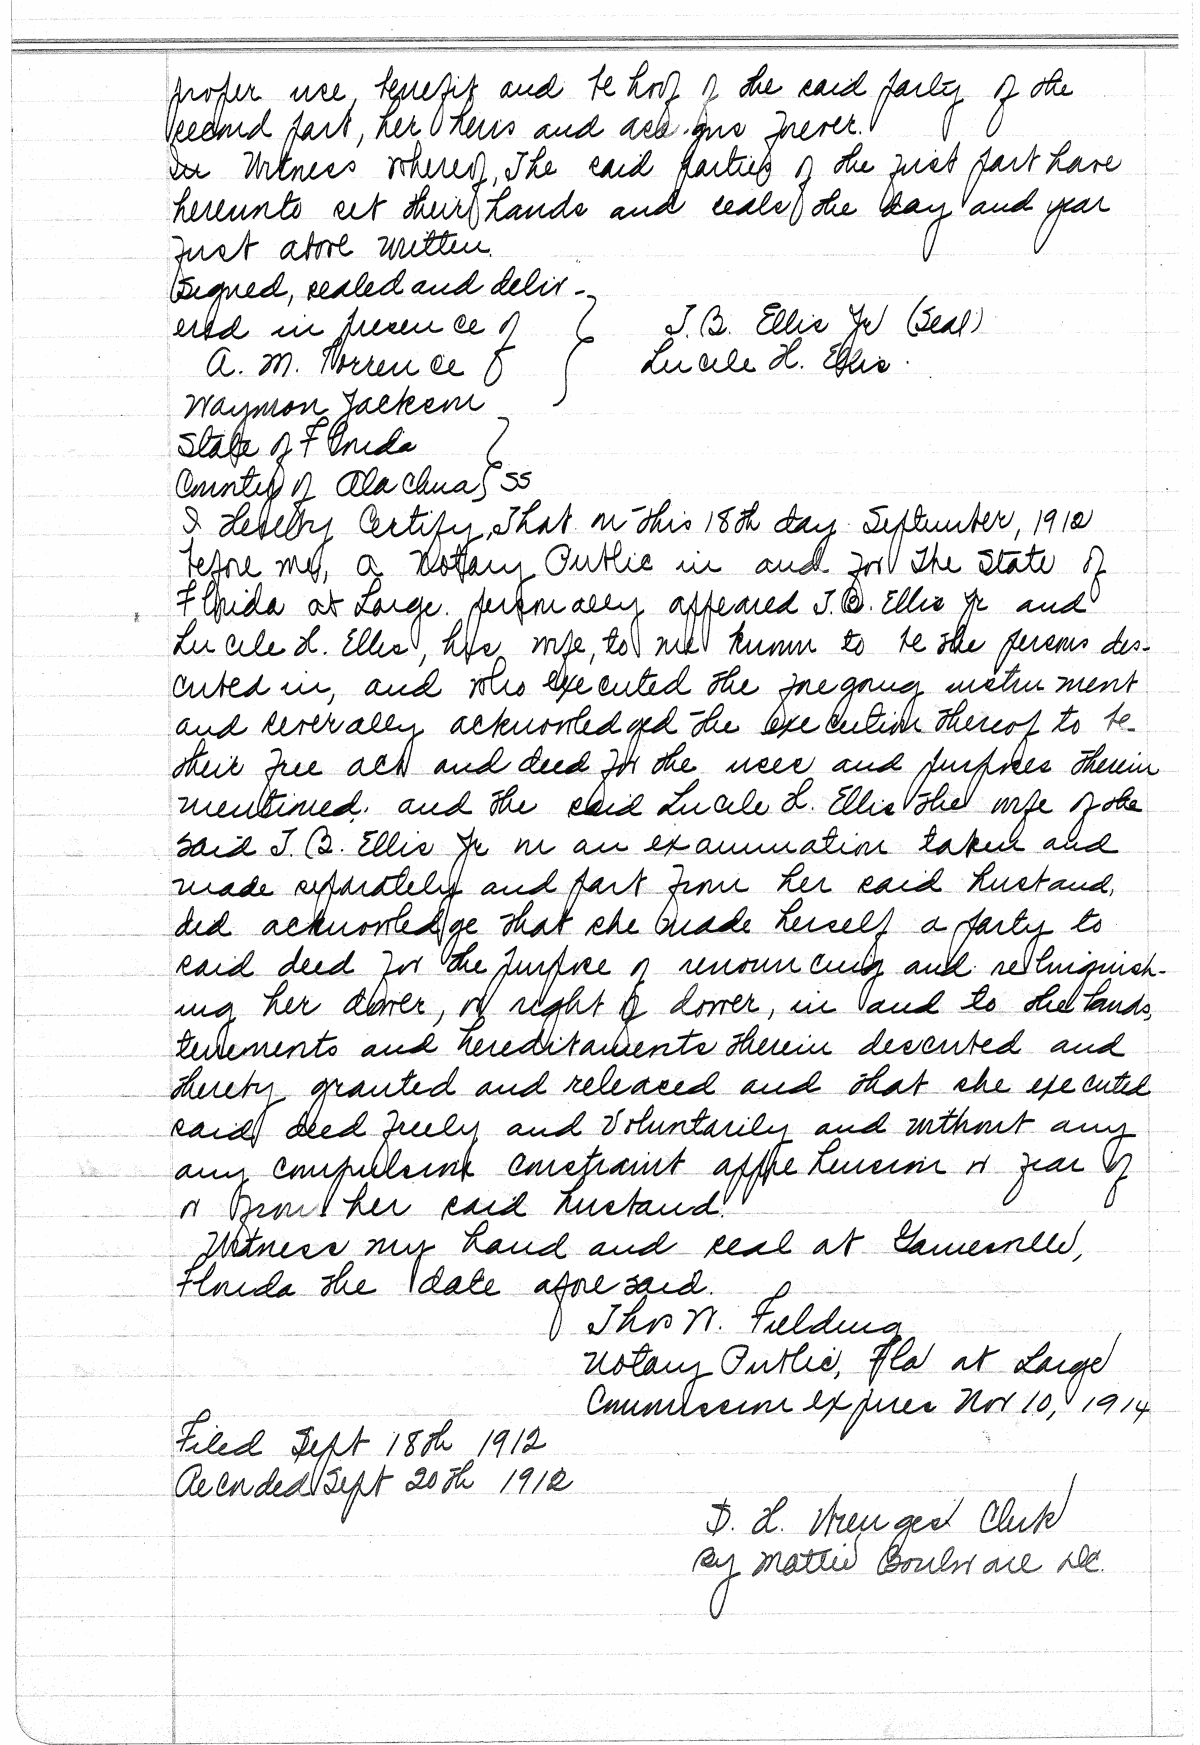 proper use, benefit and behoof of the said party of the
second part, her heirs and assigns forever.
In Witness Whereof, The said parties of the first part have
hereunto set their hands and seals the day and year
first above written.
Signed, sealed and deliv-
ered in presence of
J. B. Ellis Jr (Seal)
A. M. Torrence
Lucile H. Ellis.
Waymon Jackson
State of Florida
County of Alachua SS
I Hereby Certify, That on This 18th day September, 1912
before me, a Notary Public in and for The State of
Florida at Large. personally appeared J. B. Ellis Jr and
Lucile H. Ellis, his wife, to me known to be the persons des-
cribed in, and who executed the foregoing instrument
and severally acknowledged the execution thereof to be
their free act and deed for the uses and purposes therein
mentioned. and the said Lucile H. Ellis the wife of the
said J. B. Ellis Jr on an examination taken and
made separately and part from her said husband,
did acknowledge that she made herself a party to
said deed for the purpose of renouncing and relinquish-
ing her dower, or right of dower, in and to the lands,
tenements and hereditaments therein described and
thereby granted and released and that she executed
said deed freely and Voluntarily and without any
any compulsion constraint apprehension or fear of
or from her said husband.
Witness my hand and seal at Gainesville,
Florida the date aforesaid.
Thos W. Fielding
Notary Public, Fla at Large
Commission expires Nov 10, 1914
Filed Sept 18th 1912
Recorded Sept 20th 1912
S. H. Wienges Clerk
By Mattie Boulware D.C.